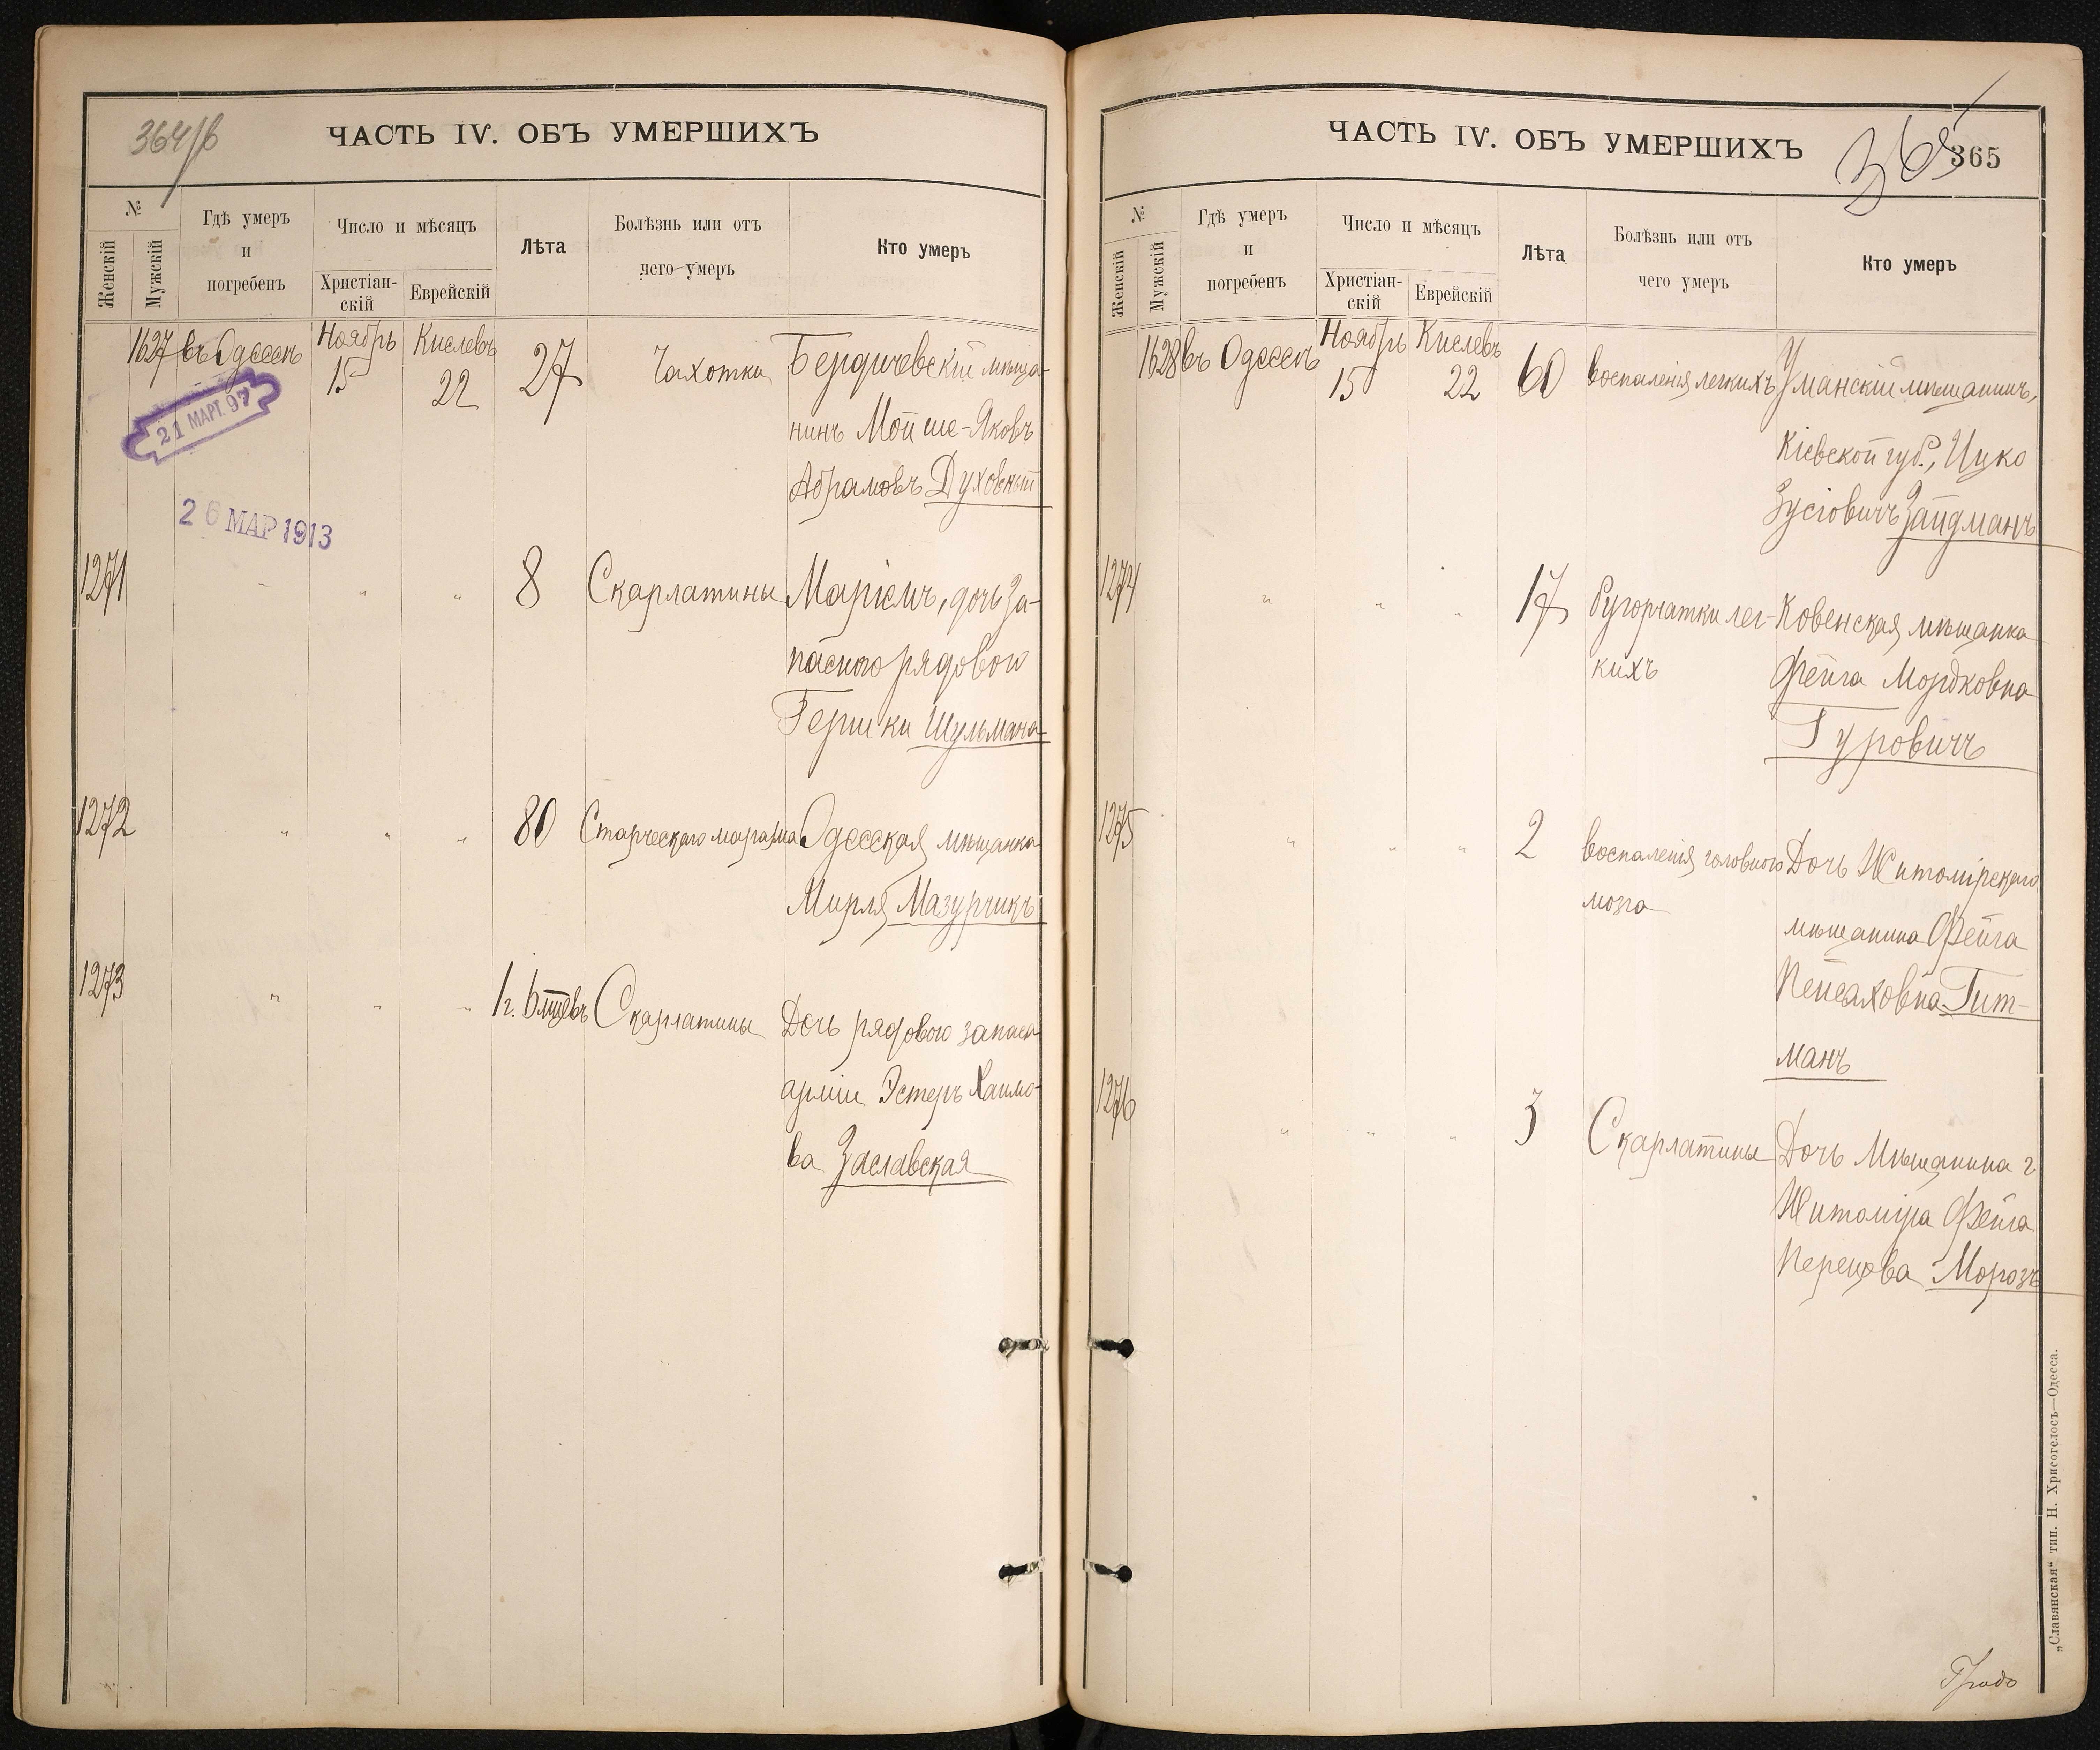 364/б
ЧАСТЬ IV. ОБЪ УМЕРШИХЪ
№
Женскій
Мужскій
Гдѣ умеръ
и
погребенъ
Число и мѣсяцъ
Христіан-
скій
Еврейскій
Лѣта
Болѣзнь или отъ
чего умеръ
Кто умеръ
1627 въ Одессѣ Ноябрь 15 Кислевъ 22 27 Чахотки Бердичевскій мѣща-
нинъ Мойше-Яковъ
Абрамовъ Духовный
21 МАРТ. 97
26 МАР 1913
1271 " " " 8 Скарлатины Маріемъ, дочь за-
паснаго рядового
Гершки Шульмана
1272 " " " 80 Старческаго маразма Одесская мѣщанка
Мирля Мазурчикъ
1273 " " " 1 г. 6 мцевъ Скарлатины Дочь рядового запаса
арміи Эстеръ Хаимо-
ва Заславская
ЧАСТЬ IV. ОБЪ УМЕРШИХЪ
365
365
№
Женскій
Мужскій
Гдѣ умеръ
и
погребенъ
Число и мѣсяцъ
Христіан-
скій
Еврейскій
Лѣта
Болѣзнь или отъ
чего умеръ
Кто умеръ
1628 въ Одессѣ Ноябрь 15 Кислевъ 22 60 воспаленія легкихъ Уманскій мѣщанинъ,
Кіевской губ., Ицко
Зусіовичъ Зайдманъ
1274 " " " 17 бугорчатки лег- Ковенская мѣщанка
кихъ Фейга Мордковна
Гуровичъ
1275 " " " 2 воспаленія головного Дочь Житомірскаго
мозга мѣщанина Фейга
Пейсаховна Гит-
манъ
1276 " " " 3 Скарлатины Дочь Мѣщанина г.
Житоміра Фейга
Перецова Морозъ
„Славянская“ тип. Н. Хрисогелосъ—Одесса.